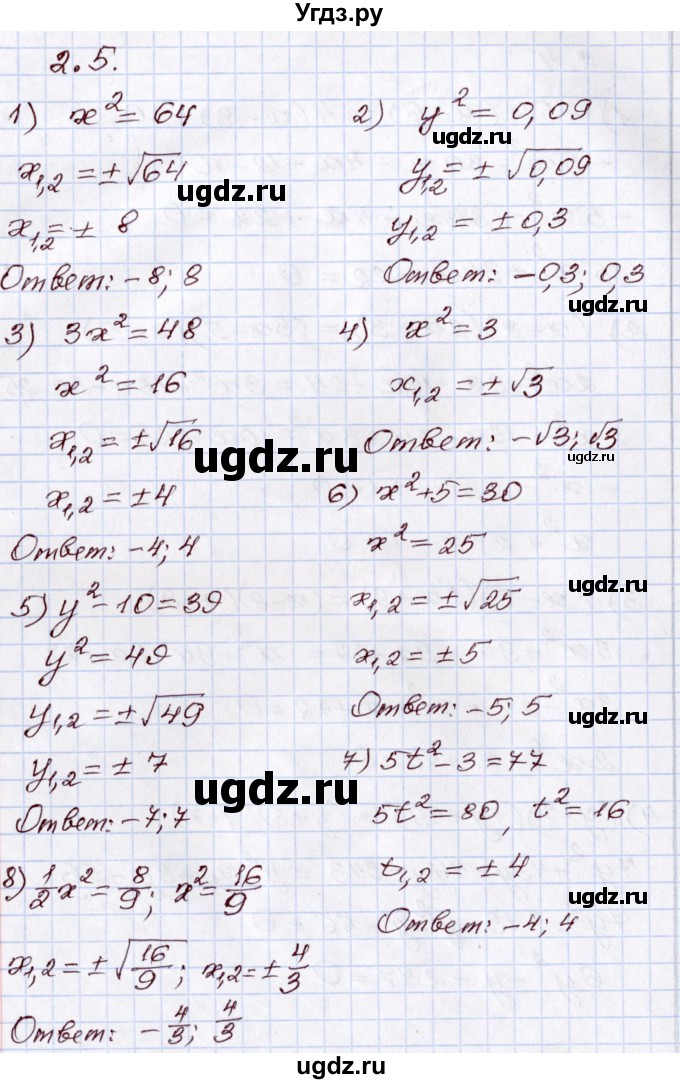 Угдз.ру
2.5.
1) x² = 64
x₁,₂ = ±√64
x₁,₂ = ± 8
Ответ: -8; 8
2) y² = 0,09
y₁,₂ = ± √0,09
y₁,₂ = ± 0,3
Ответ: -0,3; 0,3
3) 3x² = 48
x² = 16
x₁,₂ = ±√16
x₁,₂ = ±4
Ответ: -4; 4
4) x² = 3
x₁,₂ = ±√3
Ответ: -√3; √3
5) y² - 10 = 39
y² = 49
y₁,₂ = ±√49
y₁,₂ = ± 7
Ответ: -7; 7
6) x² + 5 = 30
x² = 25
x₁,₂ = ±√25
x₁,₂ = ± 5
Ответ: -5; 5
7) 5t² - 3 = 77
5t² = 80, t² = 16
t₁,₂ = ± 4
Ответ: -4; 4
8) 1/2 x² = 8/9; x² = 16/9
x₁,₂ = ±√16/9; x₁,₂ = ± 4/3
Ответ: -4/3; 4/3
ugdz.ru
ugdz.ru
ugdz.ru
ugdz.ru
ugdz.ru
ugdz.ru
ugdz.ru
ugdz.ru
ugdz.ru
ugdz.ru
ugdz.ru